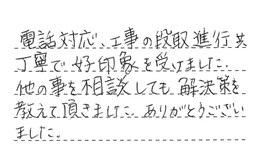 電話対応、工事の段取進行共
丁寧で好印象を受けました。
他の事を相談しても解決策を
教えて頂きました。ありがとうござい
ました。